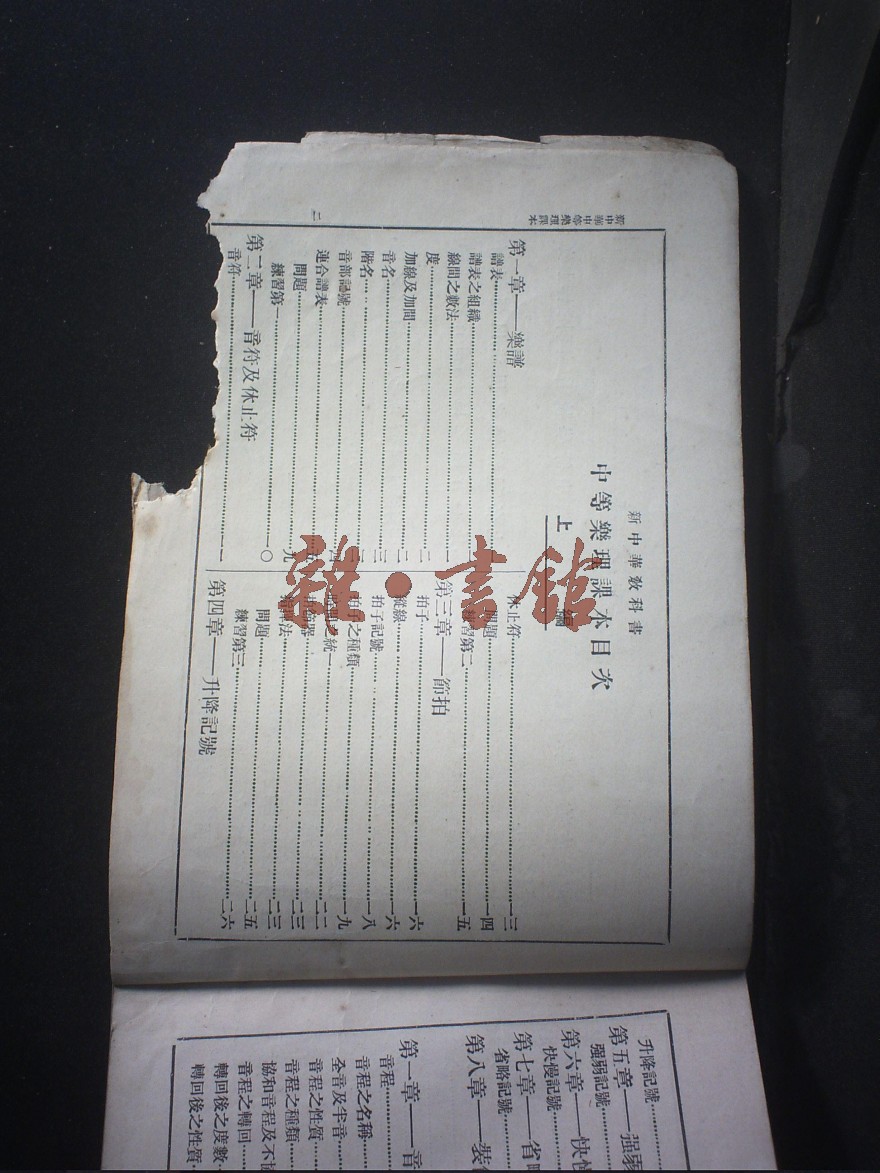 新中華中等樂理課本
二
新中華教科書
中等樂理課本目次
上 編
第一章——樂譜
譜表
譜表之組織
線間之數法
度
加線及加間
音名
階名
音部記號
連合譜表
問題 九
練習第一 一〇
第二章——音符及休止符
音符 一一
休止符 一三
問題 一四
練習第二 一五
第三章——節拍
拍子 一六
縱線 一六
拍子記號 一八
拍子之種類 一九
問題 二五
練習第三 二六
第四章——升降記號
升降記號
第五章——強弱
強弱記號
第六章——快慢
快慢記號
第七章——省略
省略記號
第八章——裝
第一章——音
音程
音程之名稱
全音及半音
音程之性質
音程之種類
協和音程及不協
音程之轉回
轉回後之度數
轉回後之性質